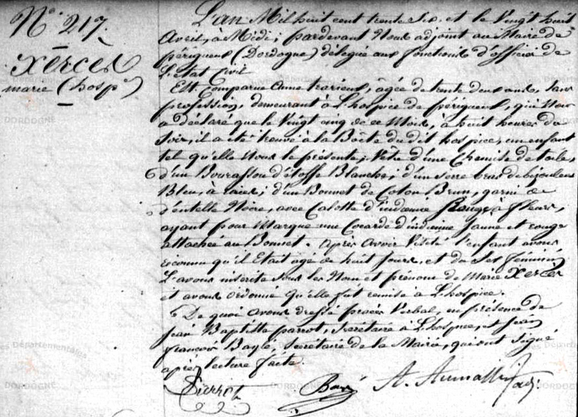 N.º 217.
Xercès
marie (hosp.)
L'an Mil huit cent trente Six et le Vingt huit
Avril, à Midi, pardevant Nous adjoint au Maire de
périgueux (Dordogne) délégué aux fonctions d'officier de
l'état Civil
Est Comparue Anne, agée de trente deux ans, sans
profession, demeurant à l'hospice de perigueux, qui Nous
a déclaré que le Vingt cinq de ce Mois, à huit heures du
Soir, il a été trouvé à la Boëte du dit hospice, un enfant
tel qu'elle Nous le présente, Vêtu d'une Chemise de toile,
d'un Bourasson d'étoffe Blanche, d'un Serre
Bleu, à raies, d'un Bonnet de Coton Brun, garni de
dentelle Noire, avec Calotte d'indienne Rouge à fleurs,
ayant pour Marque une Cocarde d'indienne Jaune et rouge
attachée au Bonnet. Après Avoir Visité l'enfant avons
reconnu qu'il Etait agé de huit Jours, et du Sexe féminin,
L'avons inscrite sous les Nom et prénom de Marie Xercès
et avons ordonné qu'elle fut remise à L'hospice.
De quoi avons dressé procès Verbal, en présence de
Jean Baptiste parrot, Secrétaire à L'hospice, et
françois Bayle, Secrétaire de la Mairie, qui ont Signé
après lecture faite.
Pierrot